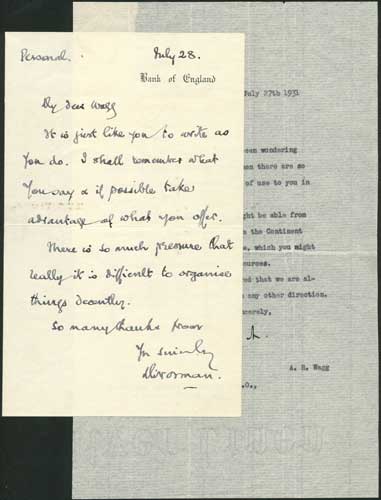 Personal.
July 28.
Bank of England
My dear Wagg
It is just like you to write as
you do. I shall remember what
you say & if possible take
advantage of what you offer.
There is so much pressure that
really it is difficult to organise
things decently.
So many thanks from
Yr sincerely
MNorman.
July 27th 1931
been wondering
on there are so
of use to you in
ght be able from
the Continent
e, which you might
ources.
red that we are al-
any other direction.
cerely,
A. R. Wagg
.O.,